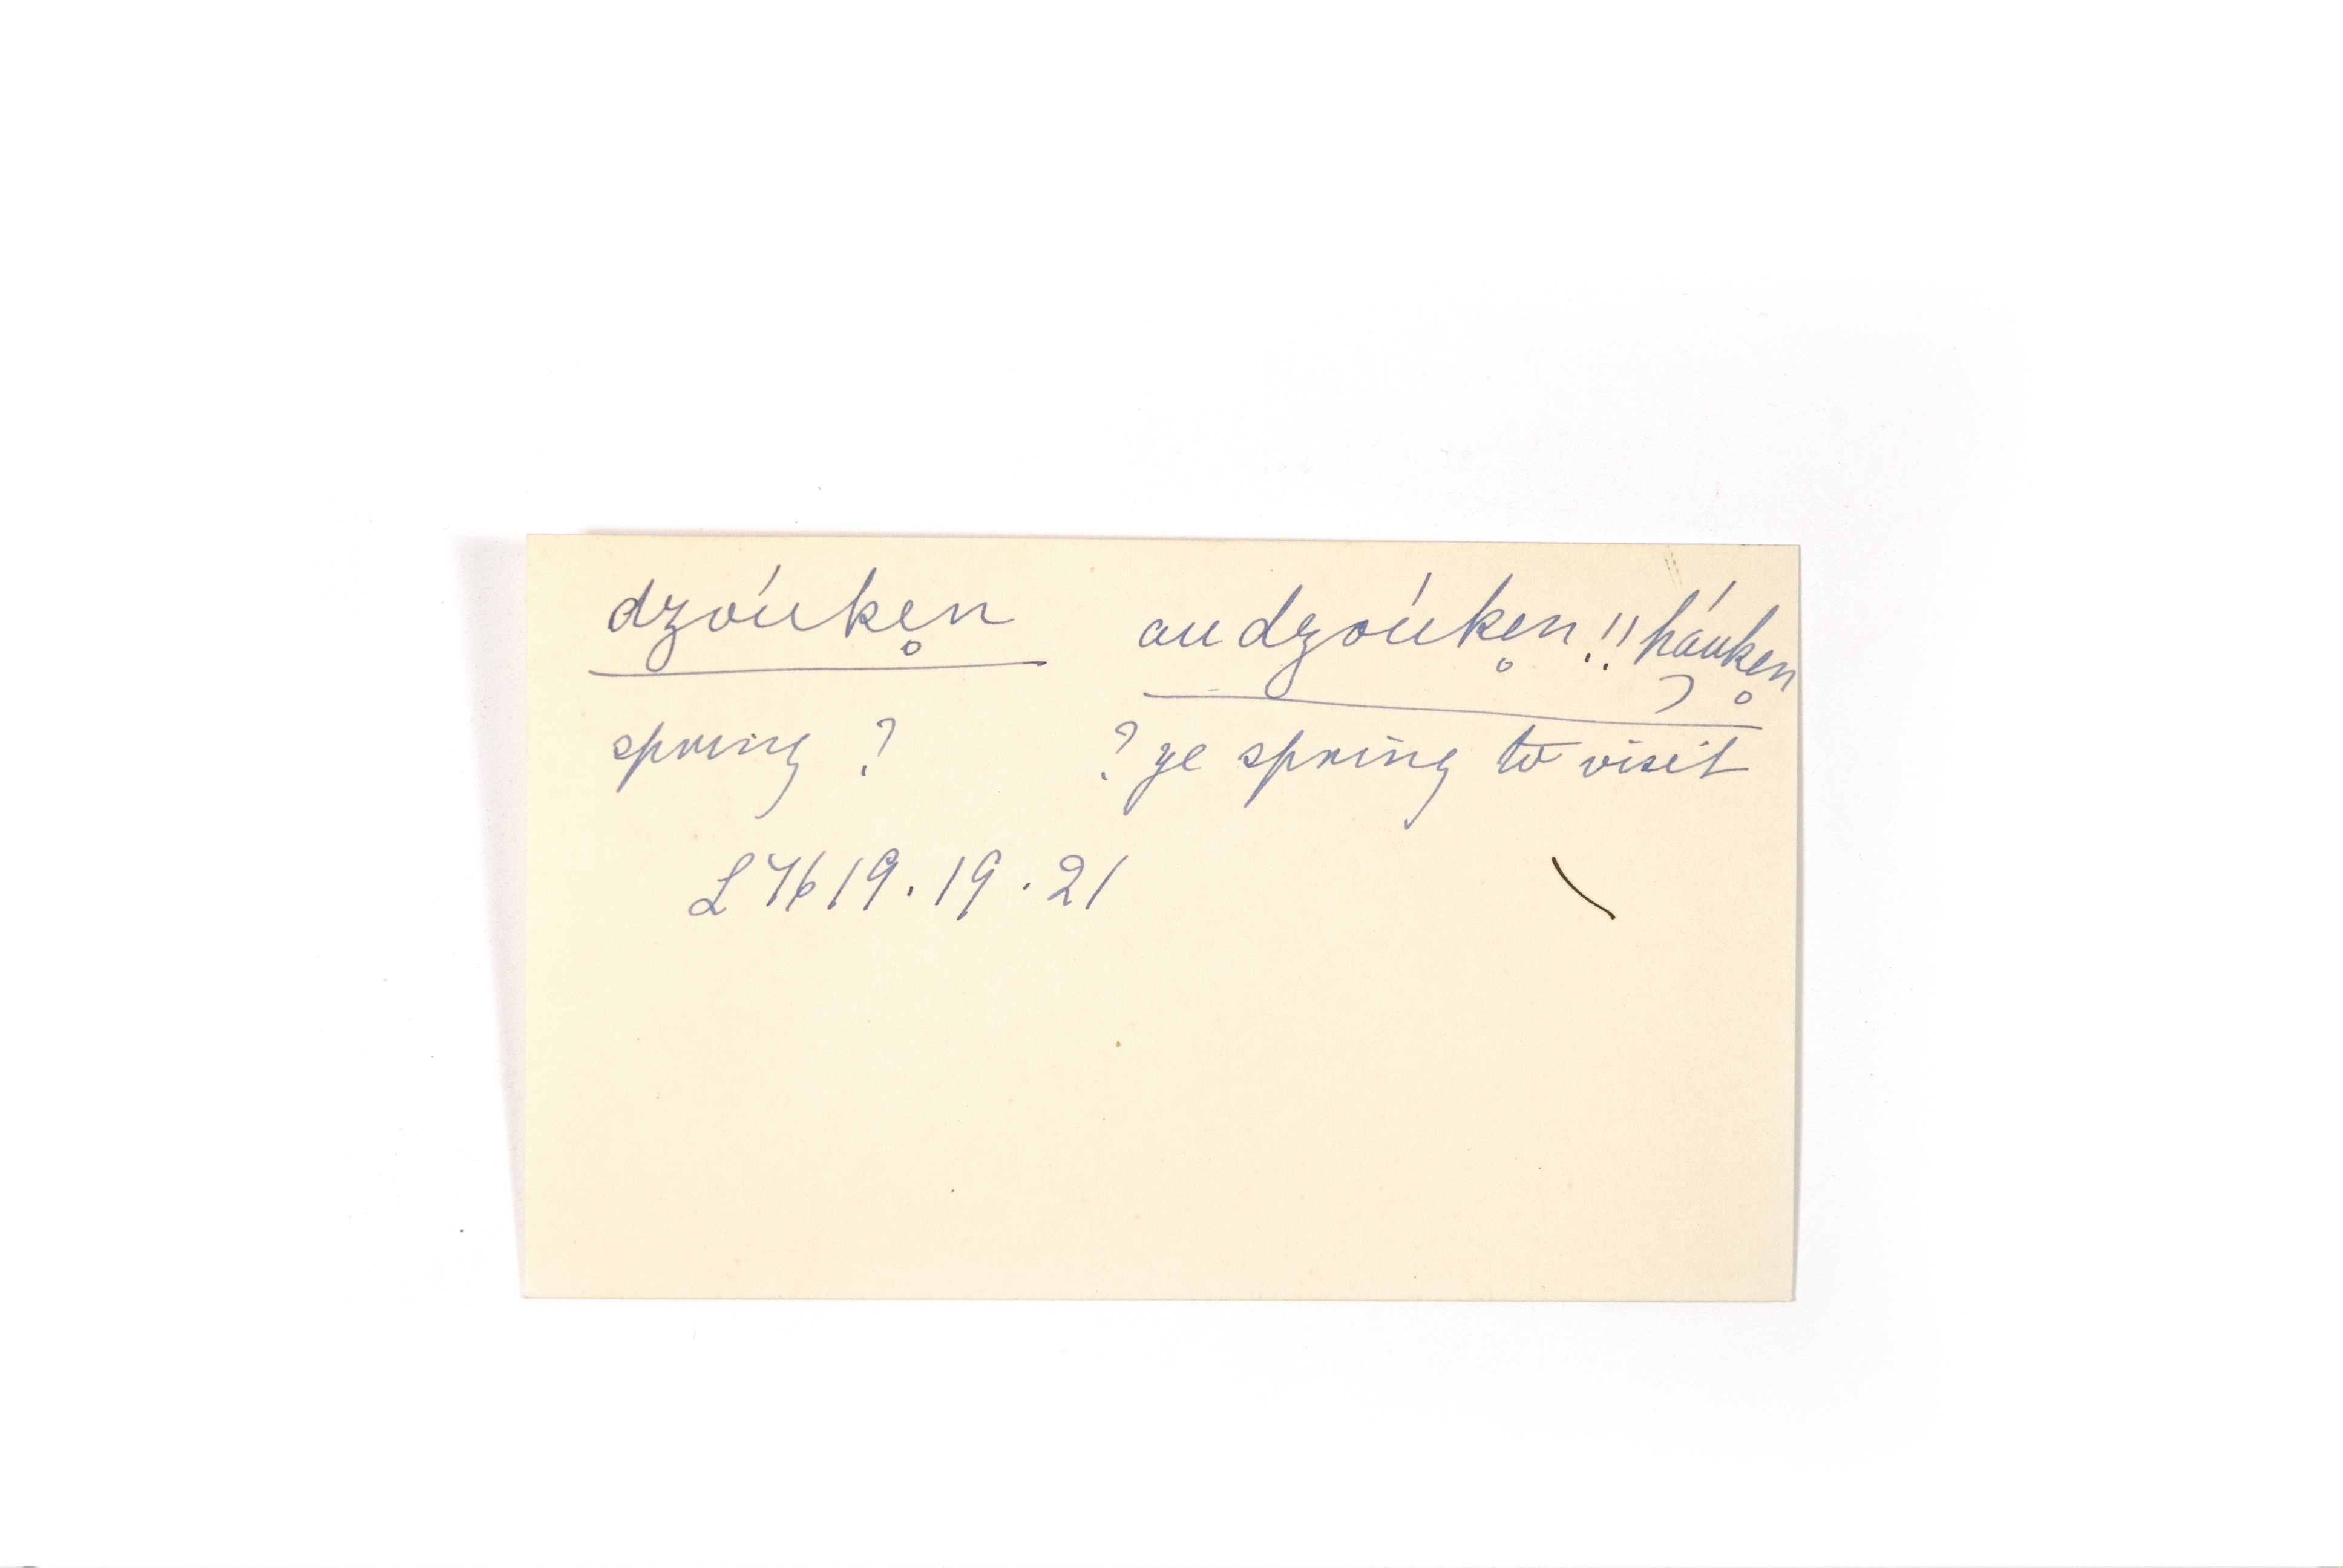 dzóuke̥n au dzóuke̥n!! háuke̥n
spring ? ? ye spring to visit
L H 19. 19. 21